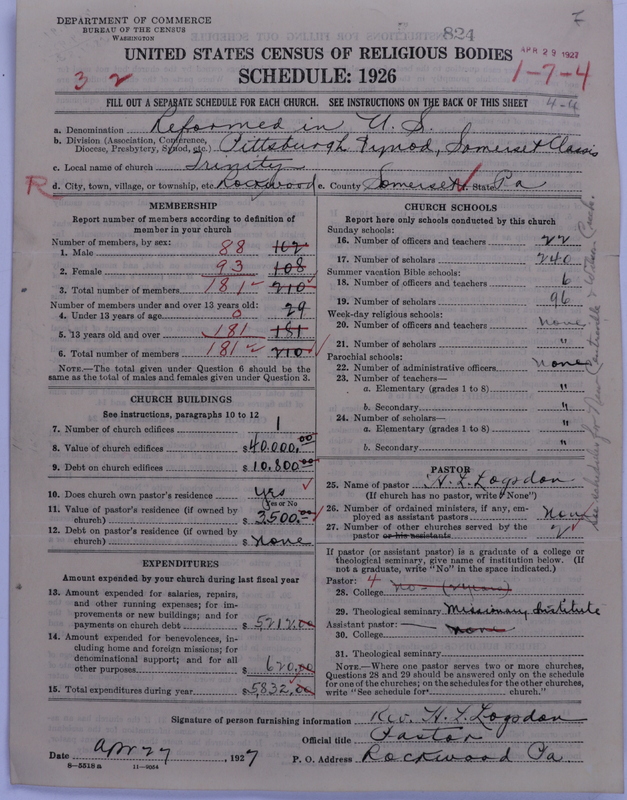 DEPARTMENT OF COMMERCE
BUREAU OF THE CENSUS
WASHINGTON
824
APR 29 1927
UNITED STATES CENSUS OF RELIGIOUS BODIES
SCHEDULE: 1926
3 2
1-7-4
FILL OUT A SEPARATE SCHEDULE FOR EACH CHURCH. SEE INSTRUCTIONS ON THE BACK OF THIS SHEET
4-4
a. Denomination Reformed in U. S.
b. Division (Association, Conference, Diocese, Presbytery, Synod, etc.) Pittsburgh Synod, Somerset Classis
c. Local name of church Trinity
R d. City, town, village, or township, etc. Rockwood e. County Somerset f. State Pa
MEMBERSHIP
Report number of members according to definition of
member in your church
Number of members, by sex:
1. Male 88 102
2. Female 93 108
3. Total number of members 181 210
Number of members under and over 13 years old:
4. Under 13 years of age 0 29
5. 13 years old and over 181 181
6. Total number of members 181 210
NOTE.—The total given under Question 6 should be
same as the total of males and females given under Question 3.
CHURCH BUILDINGS
See instructions, paragraphs 10 to 12
7. Number of church edifices 1
8. Value of church edifices $ 40.000.00
9. Debt on church edifices $ 10,800 00
10. Does church own pastor's residence yes
Yes or No
11. Value of pastor's residence (if owned by
church) $ 3,500.00
12. Debt on pastor's residence (if owned by
church) $ none
EXPENDITURES
Amount expended by your church during last fiscal year
13. Amount expended for salaries, repairs,
and other running expenses; for im-
provements or new buildings; and for
payments on church debt $ 5,212.00
14. Amount expended for benevolences, in-
cluding home and foreign missions; for
denominational support; and for all
other purposes $ 620.00
15. Total expenditures during year $ 5,832.00
CHURCH SCHOOLS
Report here only schools conducted by this church
Sunday schools:
16. Number of officers and teachers 22
17. Number of scholars 240
Summer vacation Bible schools:
18. Number of officers and teachers 6
19. Number of scholars 96
Week-day religious schools:
20. Number of officers and teachers none
21. Number of scholars "
Parochial schools:
22. Number of administrative officers none
23. Number of teachers—
a. Elementary (grades 1 to 8) "
b. Secondary "
24. Number of scholars—
a. Elementary (grades 1 to 8) "
b. Secondary "
See schedules for New Centreville &
PASTOR
25. Name of pastor H. L. Logsdon
(If church has no pastor, write "None")
26. Number of ordained ministers, if any, em-
ployed as assistant pastors none
27. Number of other churches served by the
pastor or his assistants 2
If pastor (or assistant pastor) is a graduate of a college or
theological seminary, give name of institution below. (If
not a graduate, write "No" in the space indicated.)
Pastor: 4
28. College no
29. Theological seminary Missionary Institute
Assistant pastor:
30. College none
31. Theological seminary
NOTE.—Where one pastor serves two or more churches,
Questions 28 and 29 should be answered only on the schedule
for one of the churches; on the schedules for the other churches,
write "See schedule for* church."
Signature of person furnishing information Rev. H. L. Logsdon
Official title Pastor
Date Apr 27, 1927 P. O. Address Rockwood Pa.
8—5518 a 11—9054